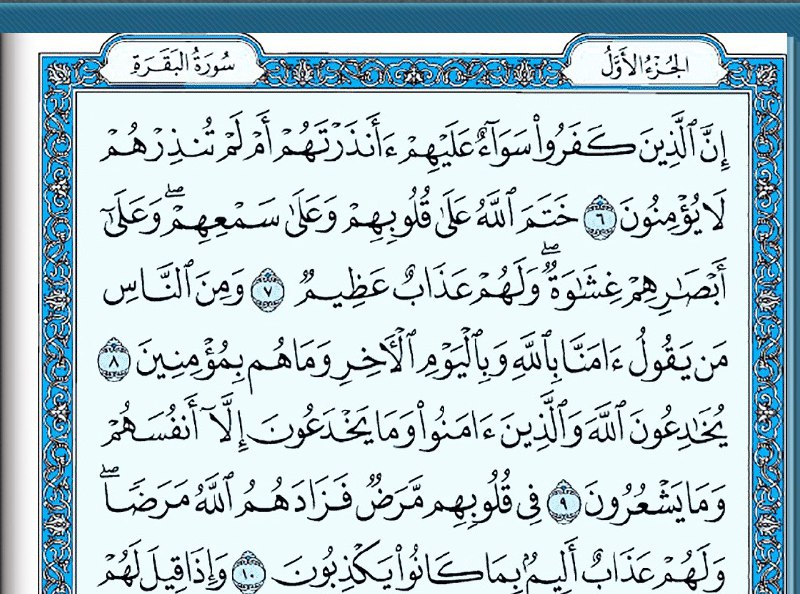 الجزء الأول
سورة البقرة
إِنَّ ٱلَّذِينَ كَفَرُوا۟ سَوَآءٌ عَلَيْهِمْ ءَأَنذَرْتَهُمْ أَمْ لَمْ تُنذِرْهُمْ
لَا يُؤْمِنُونَ ٦ خَتَمَ ٱللَّهُ عَلَىٰ قُلُوبِهِمْ وَعَلَىٰ سَمْعِهِمْ ۖ وَعَلَىٰٓ
أَبْصَـٰرِهِمْ غِشَـٰوَةٌ ۖ وَلَهُمْ عَذَابٌ عَظِيمٌ ٧ وَمِنَ ٱلنَّاسِ
مَن يَقُولُ ءَامَنَّا بِٱللَّهِ وَبِٱلْيَوْمِ ٱلْـَٔاخِرِ وَمَا هُم بِمُؤْمِنِينَ ٨
يُخَـٰدِعُونَ ٱللَّهَ وَٱلَّذِينَ ءَامَنُوا۟ وَمَا يَخْدَعُونَ إِلَّآ أَنفُسَهُمْ
وَمَا يَشْعُرُونَ ٩ فِى قُلُوبِهِم مَّرَضٌ فَزَادَهُمُ ٱللَّهُ مَرَضًا ۖ
وَلَهُمْ عَذَابٌ أَلِيمٌۢ بِمَا كَانُوا۟ يَكْذِبُونَ ١٠ وَإِذَا قِيلَ لَهُمْ